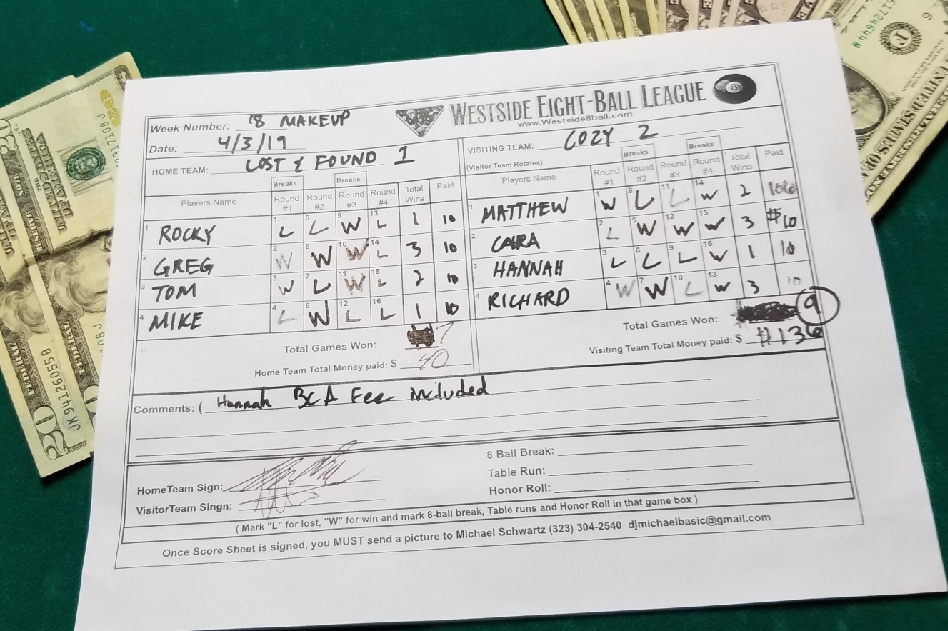 WESTSIDE EIGHT-BALL LEAGUE
www.Westside8ball.com
Week Number: '8 MAKEUP
Date: 4/3/19
HOME TEAM: LOST & FOUND 1
VISITING TEAM: COZY 2
(Visitor Team Rotates)
Breaks Breaks
Players Name Round #1 Round #2 Round #3 Round #4 Total Wins Paid
1 ROCKY 1 L 5 L 9 W 13 L 1 10
2 GREG 2 W 6 W 10 W 14 L 3 10
3 TOM 3 W 7 L 11 W 15 L 2 10
4 MIKE 4 L 8 W 12 L 16 L 1 10
Total Games Won: 7
Home Team Total Money paid: $ 40
Breaks Breaks
Players Name Round #1 Round #2 Round #3 Round #4 Total Wins Paid
1 MATTHEW W L L 14 W 2
2 CARA L W 12 W 15 W 3 $10
3 HANNAH L L 9 L 16 W 1 10
4 RICHARD 4 W 7 W 10 L 13 W 3 10
Total Games Won: 9
Visiting Team Total Money paid: $ $136
Comments: ( Hannah BCA Fee included
8 Ball Break:
Table Run:
Honor Roll:
HomeTeam Sign:
VisitorTeam Singn:
( Mark "L" for lost, "W" for win and mark 8-ball break, Table runs and Honor Roll in that game box )
Once Score Sheet is signed, you MUST send a picture to Michael Schwartz (323) 304-2540 djmichaelbasic@gmail.com
JK94126055B
20